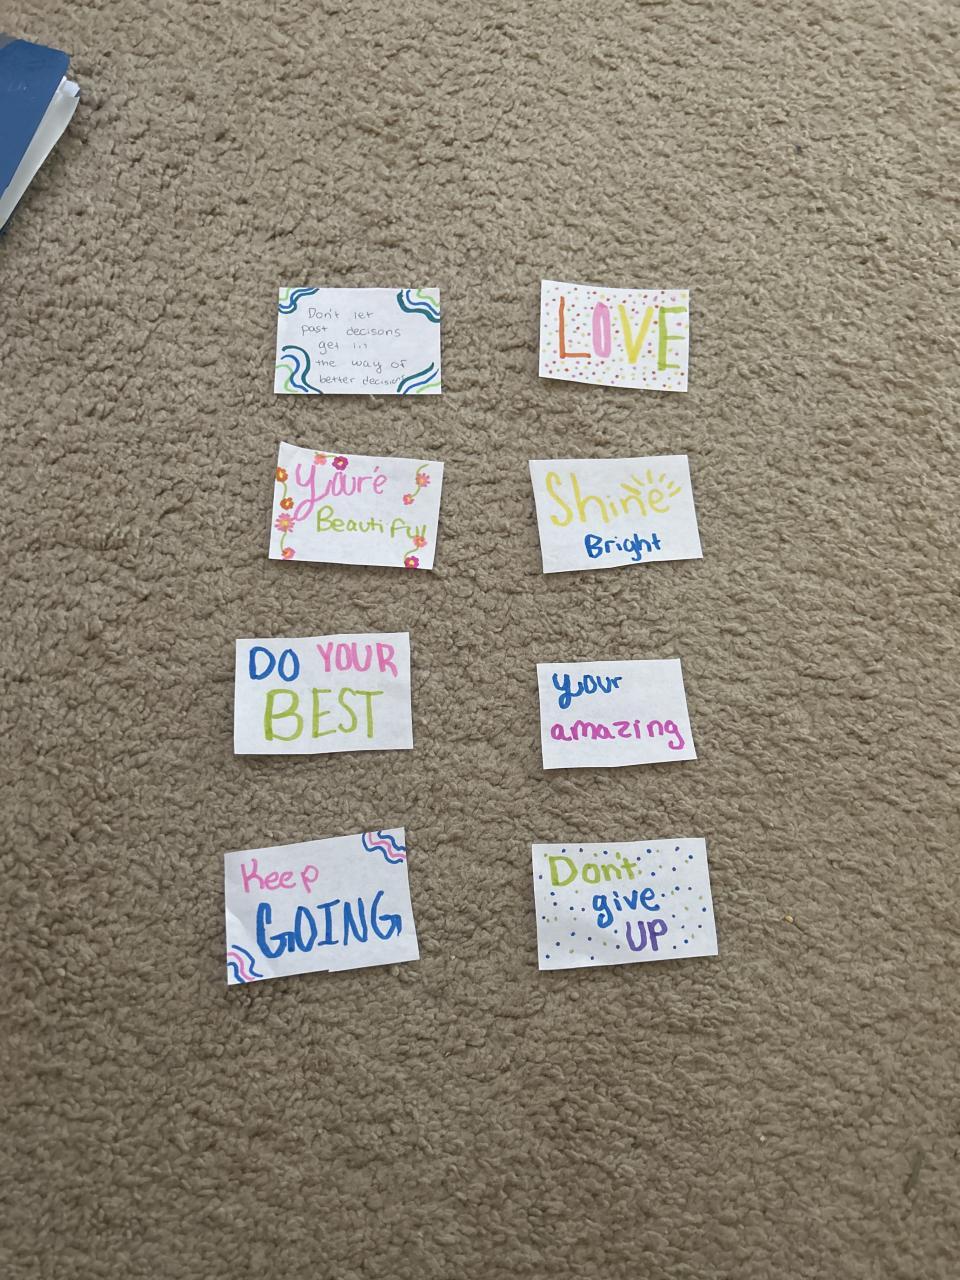 Don't let
past decisons
get in
the way of
better decisions
LOVE
Your'e
Beautiful
Shine
Bright
DO YOUR
BEST
your
amazing
Keep
GOING
Don't
give
UP